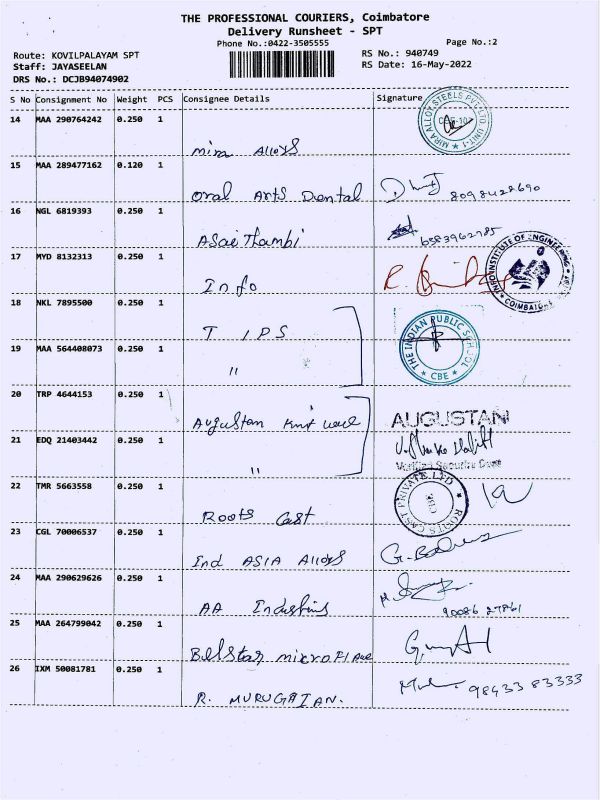 THE PROFESSIONAL COURIERS, Coimbatore
Delivery Runsheet - SPT
Phone No.:0422-3505555
Page No.:2
Route: KOVILPALAYAM SPT
RS No.: 940749
Staff: JAYASEELAN
RS Date: 16-May-2022
DRS No.: DCJB94074902
S No Consignment No Weight PCS Consignee Details Signature
14 MAA 290764242 0.250 1
MIRA ALLOY STEELS PVT LTD, UNIT-1
Mira Alloys
15 MAA 289477162 0.120 1
Oral Arts Dental 8098428690
16 NGL 6819393 0.250 1
Asai Thambi 6583962985
17 MYD 8132313 0.250 1
INFO INSTITUTE OF ENGINEERING
COIMBATORE
Info
18 NKL 7895500 0.250 1
T IPS
THE INDIAN PUBLIC SCHOOL
CBE
19 MAA 564408073 0.250 1
"
20 TRP 4644153 0.250 1
Augustan Knit wear AUGUSTAN
21 EDQ 21403442 0.250 1
"
22 TMR 5663558 0.250 1
ROOTS CAST PRIVATE LTD
Roots Cast
23 CGL 70006537 0.250 1
Ind ASIA Alloys
24 MAA 290629626 0.250 1
AA Industries 90086 27861
25 MAA 264799042 0.250 1
Belstar microfinance
26 IXM 50081781 0.250 1
R. MURUGAIAN. 98433 83333